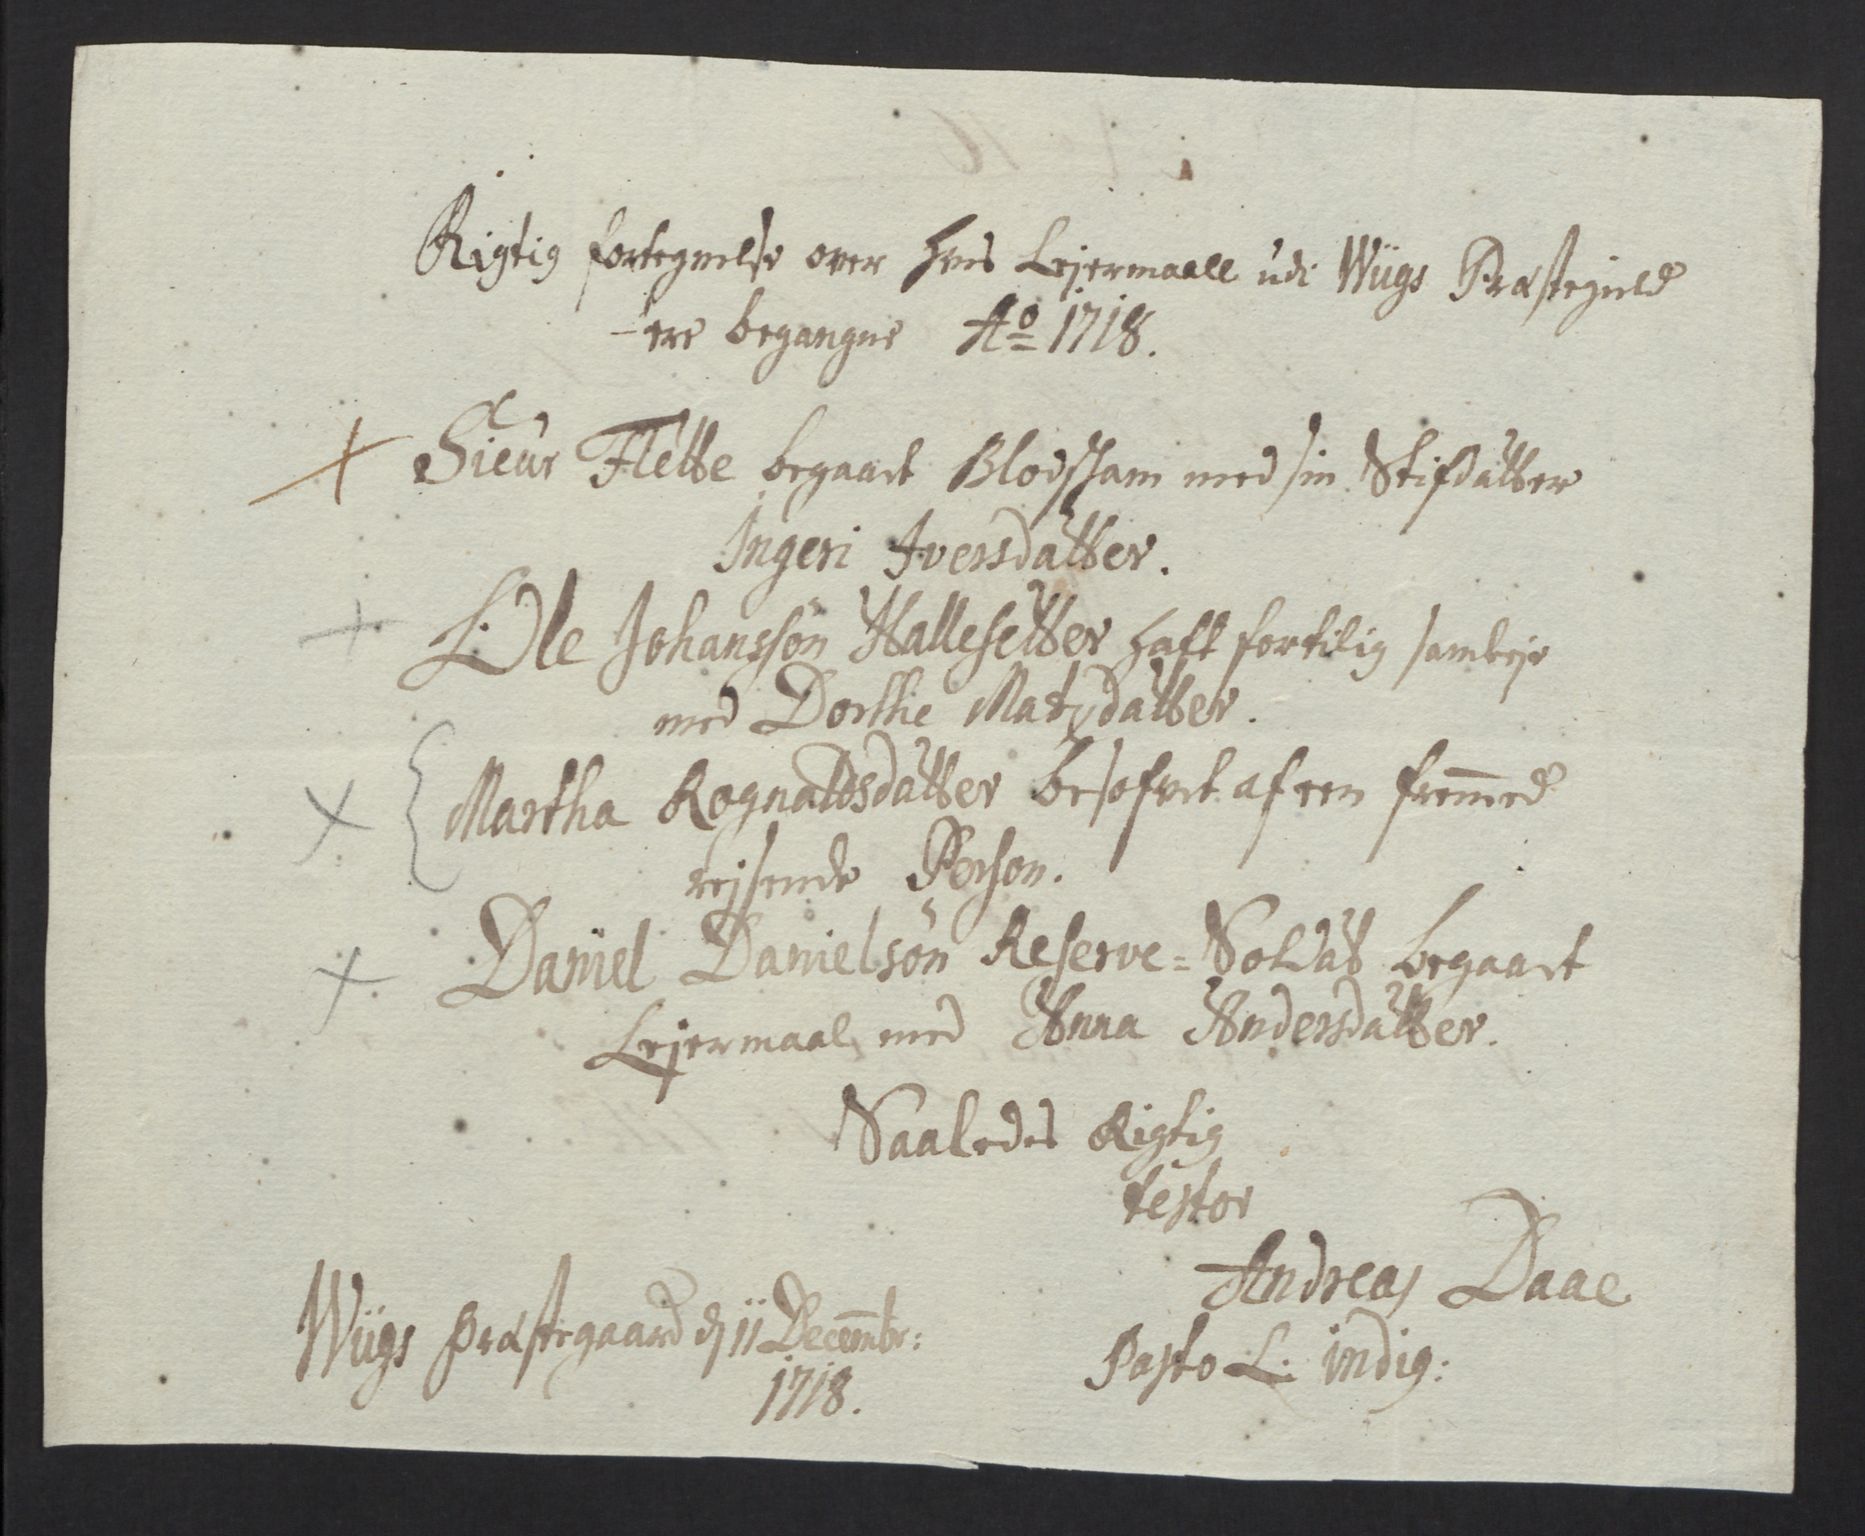 Rigtig fortegnelse over hvis Lejermaall udi Wiigs Præstegield
ere begangne Ao 1718.
Sieur Flette begaaet Blodskam med sin Stifdatter
Ingeri Iversdatter.
Ole Johanssøn Hallesetter haft fortilig samleje
med Dorthe Matzdatter.
Martha Rognaldsdatter besofvet af een fremmed
rejsende Person.
Daniel Danielsøn Reserve=Soldat begaaet
Lejermaal med Anna Andersdatter.
Saaledes Rigtig
testor
Andreas Daae
Wiigs præstegaard d 11 Decembr:
1718.
Pasto L: indig: